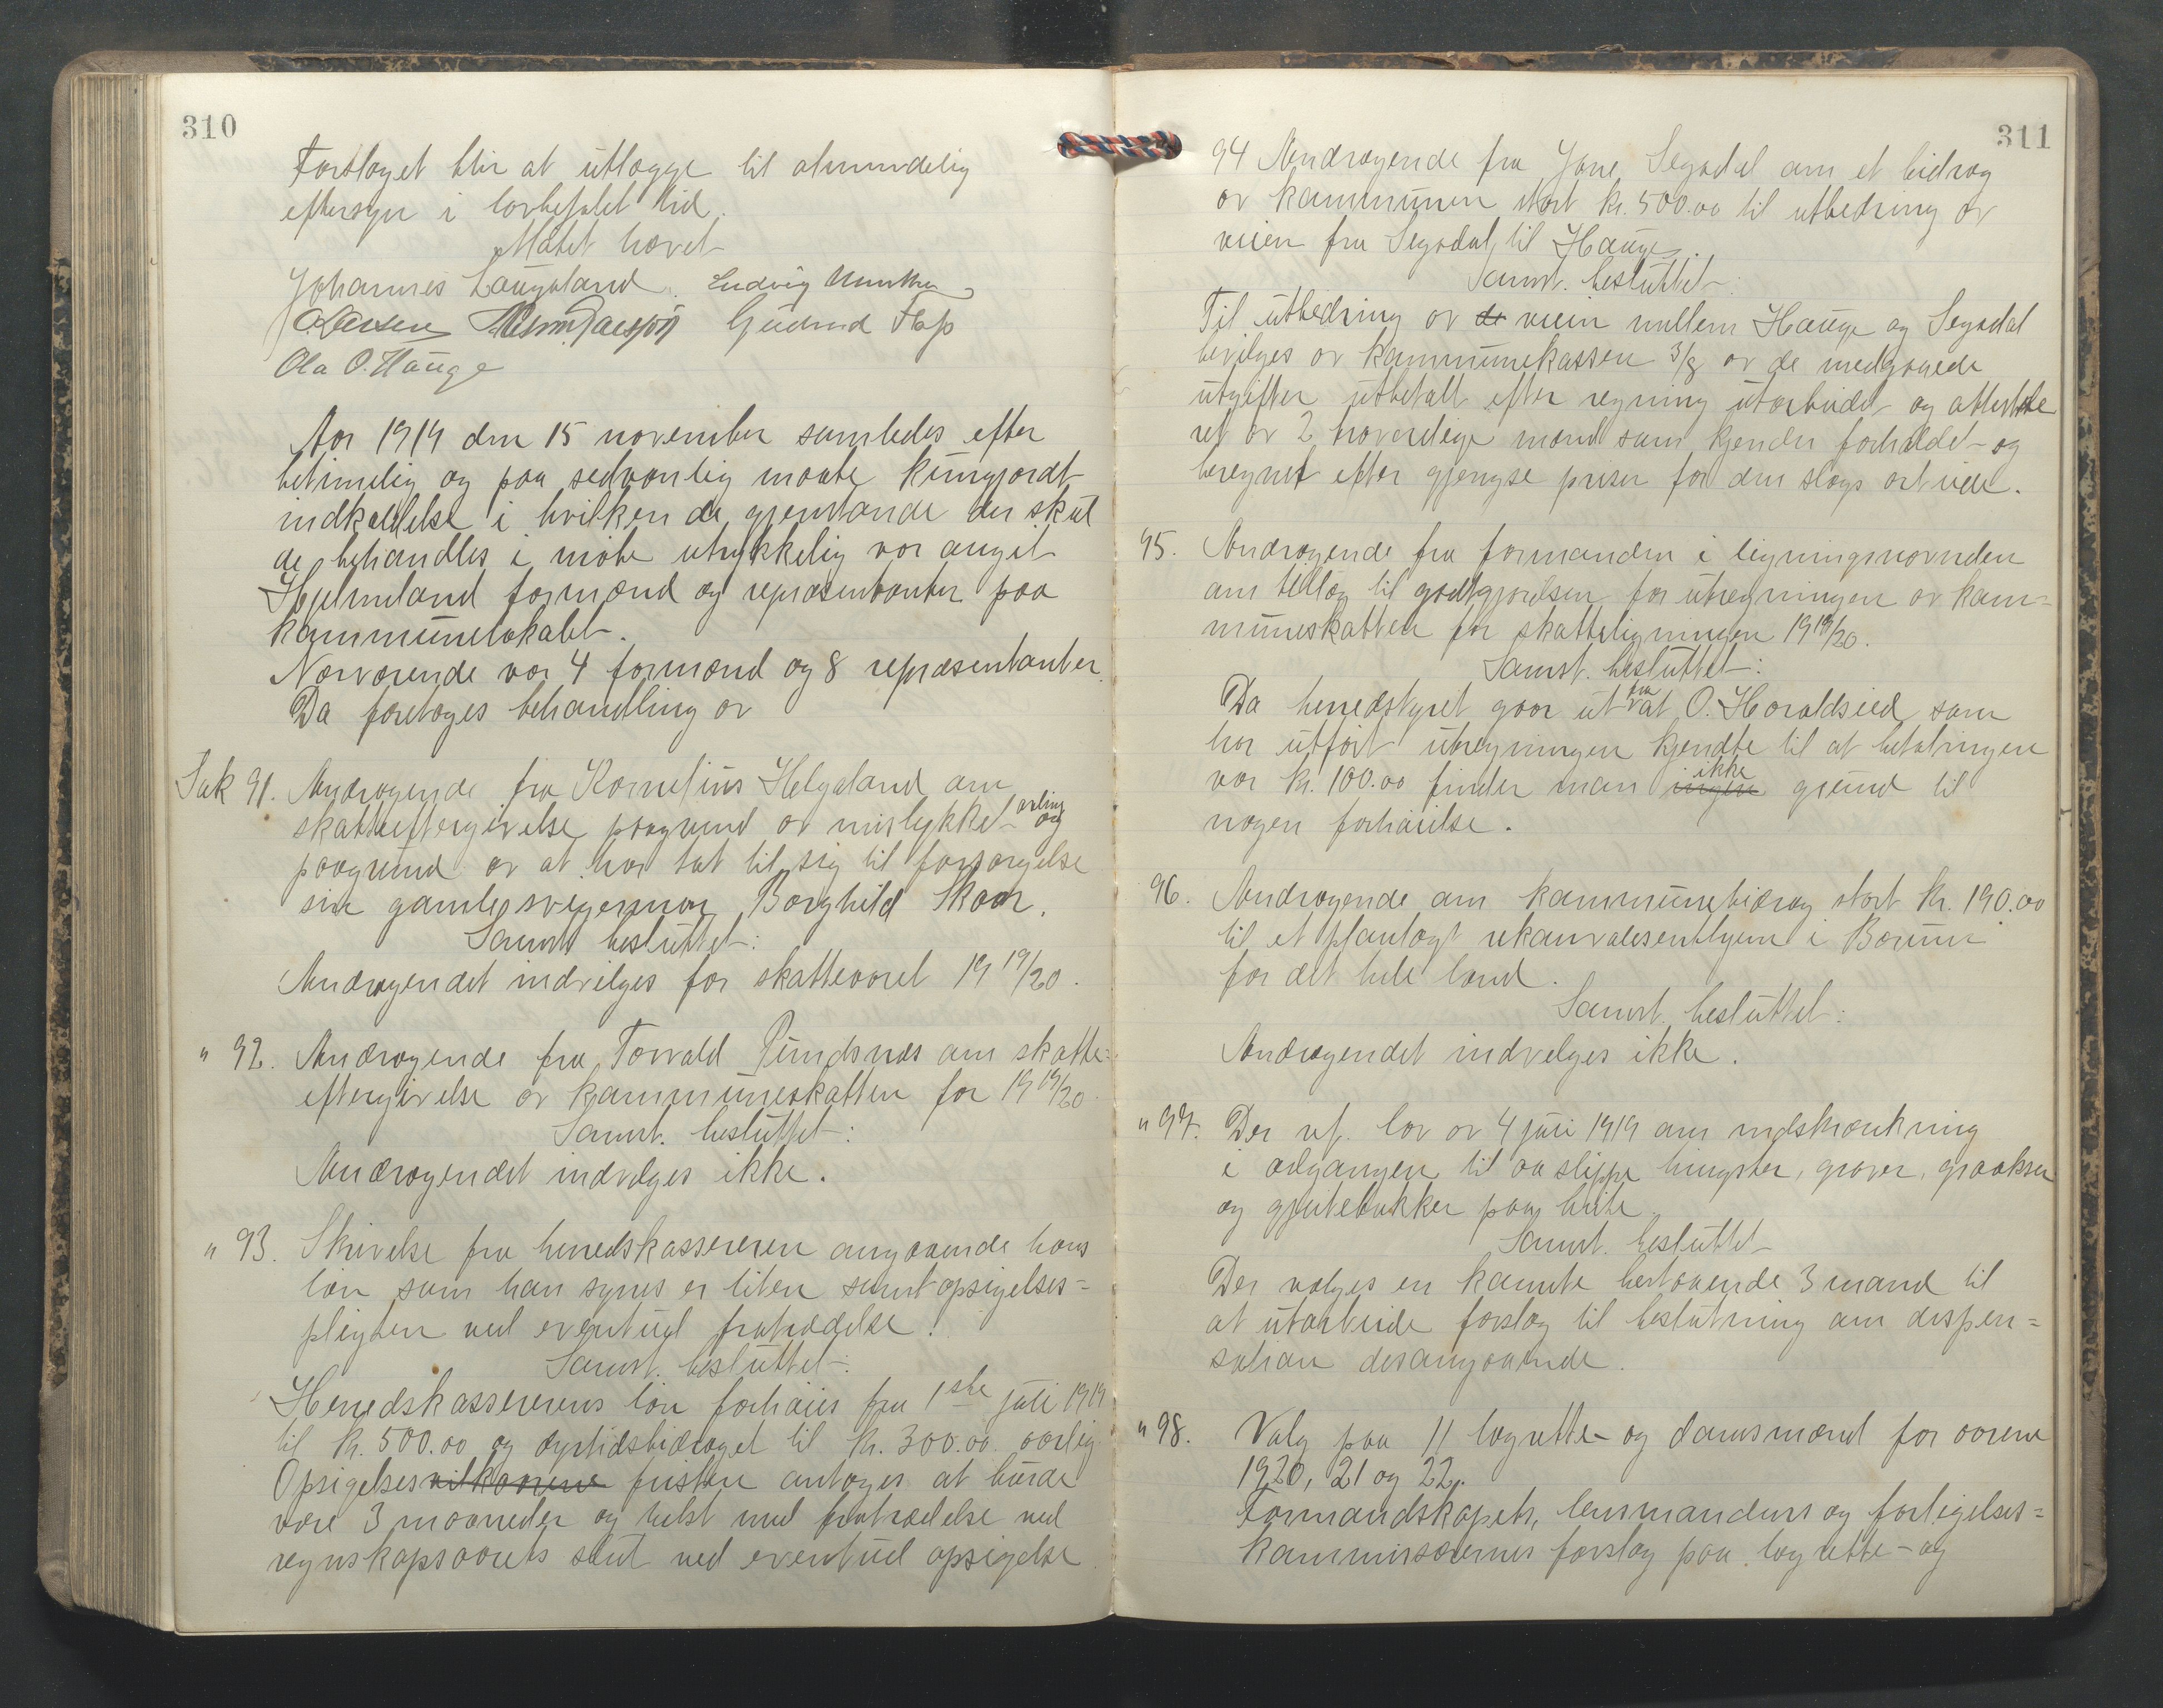 310
Forslaget blir at utlægge til almindelig
eftersyn i lovbefalet tid.
Møtet hævet
Johannes Laugaland. Ludvig
O. Larsen Gudmund
Ola O. Hauge
Aar 1919 den 15 november samledes efter
betimelig og paa sedvanlig maate kungjordt
indkaldelse i hvilken de gjenstande der skul
de behandles i møte utrykkelig var angit
Hjelmeland formænd og repræsentanter paa
kommunelokalet.
Nærværende var 4 formænd og 8 repræsentanter.
Da foretoges behandling av
Sak 91. Andragende fra Kornelius Helgaland om
skatteeftergivelse paagrund av mislykket avling og
paagrund av at har tat til sig til forsørgelse
sin gamle svigermor Borghild Skaar.
Samst. besluttet:
Andragendet indvilges for skatteaaret 19 19/20.
" 92. Andragende fra Torvald Pundsnes om skatte=
eftergivelse av kommuneskatten for 19 19/20
Samst. besluttet:
Andragendet indvilges ikke.
" 93. Skrivelse fra herredskassereren angaaende hans
løn som han synes er liten samt opsigelses=
pligten ved eventuel fratrædelse.
Samst. besluttet:
Herredskassererens løn forhøies fra 1ste juli 1919
til kr. 500.00 og dyrtidsbidraget til kr. 300.00 aarlig
Opsigelsesvilkaarene fristen antages at burde
være 3 maaneder og helst med fratrædelse ved
regnskapsaarets slut ved eventuel opsigelse
311
94 Andragende fra Jone Segadal om et bidrag
av kommunen stort kr. 500.00 til utbedring av
veien fra Segadal til Hauge.
Samst. besluttet:
Til utbedring av de veien mellem Hauge og Segadal
bevilges av kommunekassen 3/8 av de medgaaede
utgifter utbetalt efter regning utarbeidet og atterte
ret av 2 hæderlige mænd som kjender forholdet og
beregnet efter gjengse priser for den slags arbeide.
95. Andragende fra formanden i ligningsnævnden
om tillæg til godtgjørelsen for utregningen av kom=
muneskatten for skatteligningen 19 19/20.
Samst. besluttet:
Da herredstyret gaar ut fra at O. Haraldseid som
har utført utregningen kjendte til at betalingen
var kr. 100.00 finder man ingen ikke grund til
nogen forhøielse.
96. Andragende om kommunebidrag stort kr. 190.00
til et planlagt rekonvalesenthjem i Bærum
for det hele land.
Samst. besluttet:
Andragendet indvilges ikke.
" 97. Der ref. lov av 4 juli 1919 om indskrænkning
i adgangen til aa slippe hingster, graver, graokser
og gjeitebukker paa beite.
Samst. besluttet
Der vælges en komite bestaaende 3 mand til
at utarbeide forslag til beslutning om dispen=
sation desangaaende.
" 98. Valg paa 11 lagrette- og domsmænd for aarene
1920, 21 og 22.
Formandskapets, lensmandens og forligelses=
kommissærernes forslag paa lagrette- og